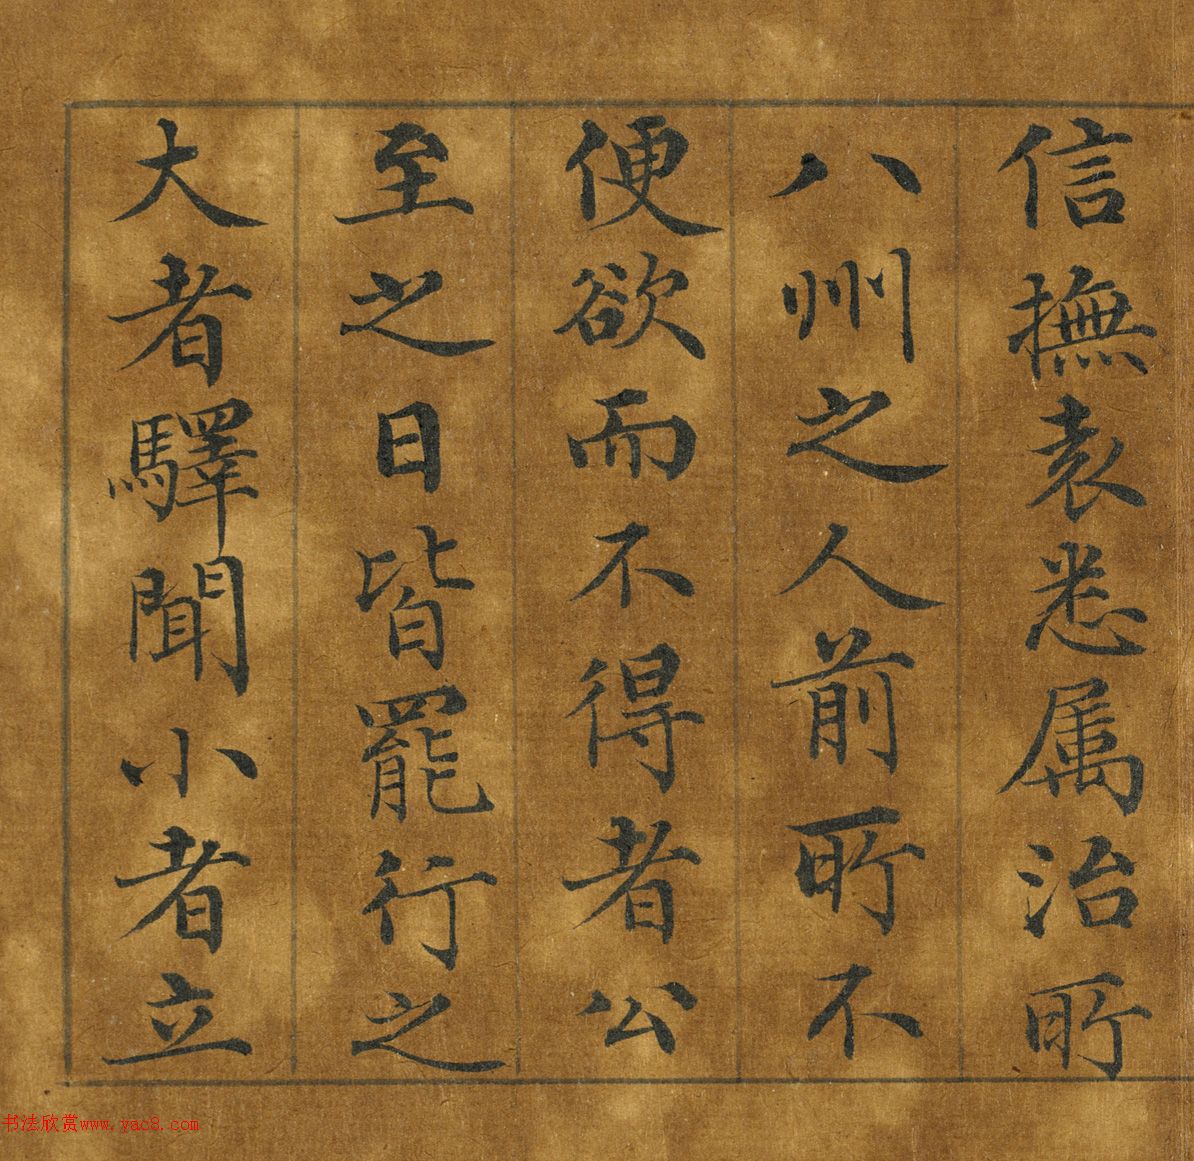 信撫袁悉属治所
八州之人前所不
便欲而不得者公
至之日皆罷行之
大者驛聞小者立
书法欣赏www.yac8.com